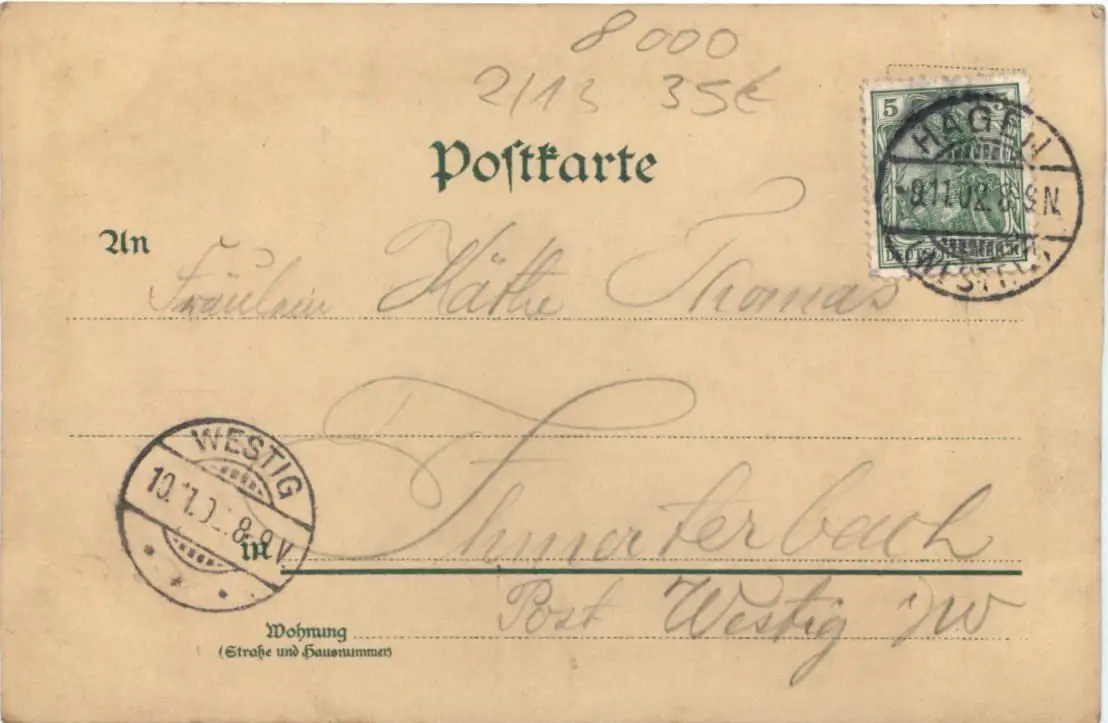 8000
2/13 35€
Postkarte
5 5
HAGEN
9.11.02. 8-9N
(WESTF.)
An
Fräulein Käthe Thomas
WESTIG
10.11.02. 8-9V
in Ihmerterbach
Post Westig i/W
Wohnung
(Straße und Hausnummer)